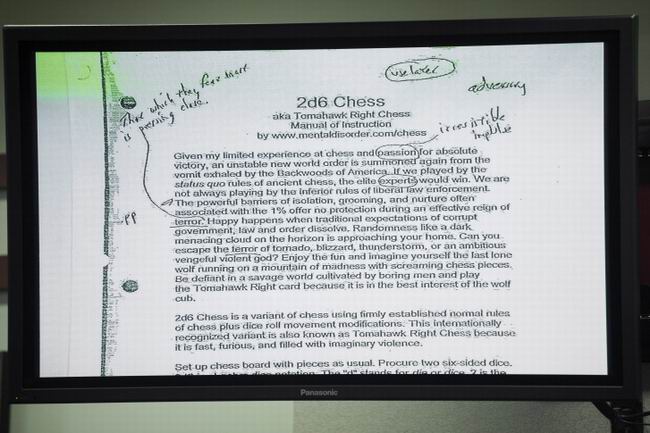 use later
adversary
Time which they fear most
is pressing close.
irresistible
impulse
2d6 Chess
aka Tomahawk Right Chess
Manual of Instruction
by www.mentaldisorder.com/chess
Given my limited experience at chess and passion for absolute
victory, an unstable new world order is summoned again from the
vomit exhaled by the Backwoods of America. If we played by the
status quo rules of ancient chess, the elite experts would win. We are
not always playing by the inferior rules of liberal law enforcement.
The powerful barriers of isolation, grooming, and nurture often
associated with the 1% offer no protection during an effective reign of
terror. Happy happens when traditional expectations of corrupt
government, law and order dissolve. Randomness like a dark
menacing cloud on the horizon is approaching your home. Can you
escape the terror of tornado, blizzard, thunderstorm, or an ambitious
vengeful violent god? Enjoy the fun and imagine yourself the last lone
wolf running on a mountain of madness with screaming chess pieces.
Be defiant in a savage world cultivated by boring men and play
the Tomahawk Right card because it is in the best interest of the wolf
cub.
PP
2d6 Chess is a variant of chess using firmly established normal rules
of chess plus dice roll movement modifications. This internationally
recognized variant is also known as Tomahawk Right Chess because
it is fast, furious, and filled with imaginary violence.
Set up chess board with pieces as usual. Procure two six-sided dice.
dice notation. The "d" stands for die or dice. 2 is the
Panasonic